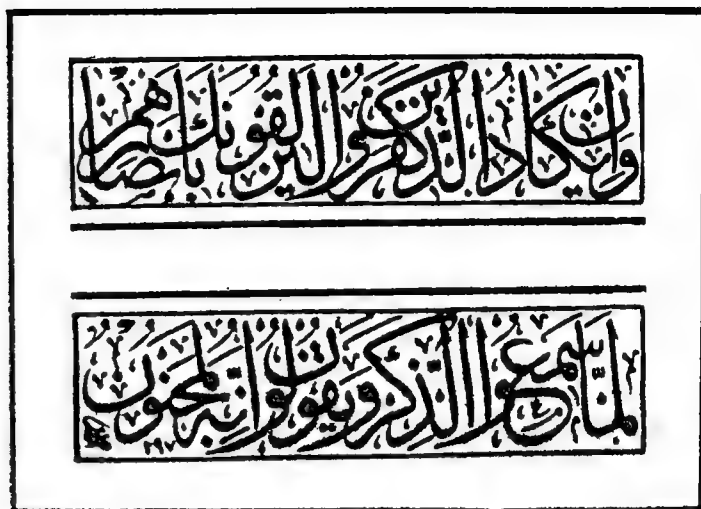 وإن يكاد الذين كفروا ليزلقونك بأبصارهم
لما سمعوا الذكر ويقولون إنه لمجنون